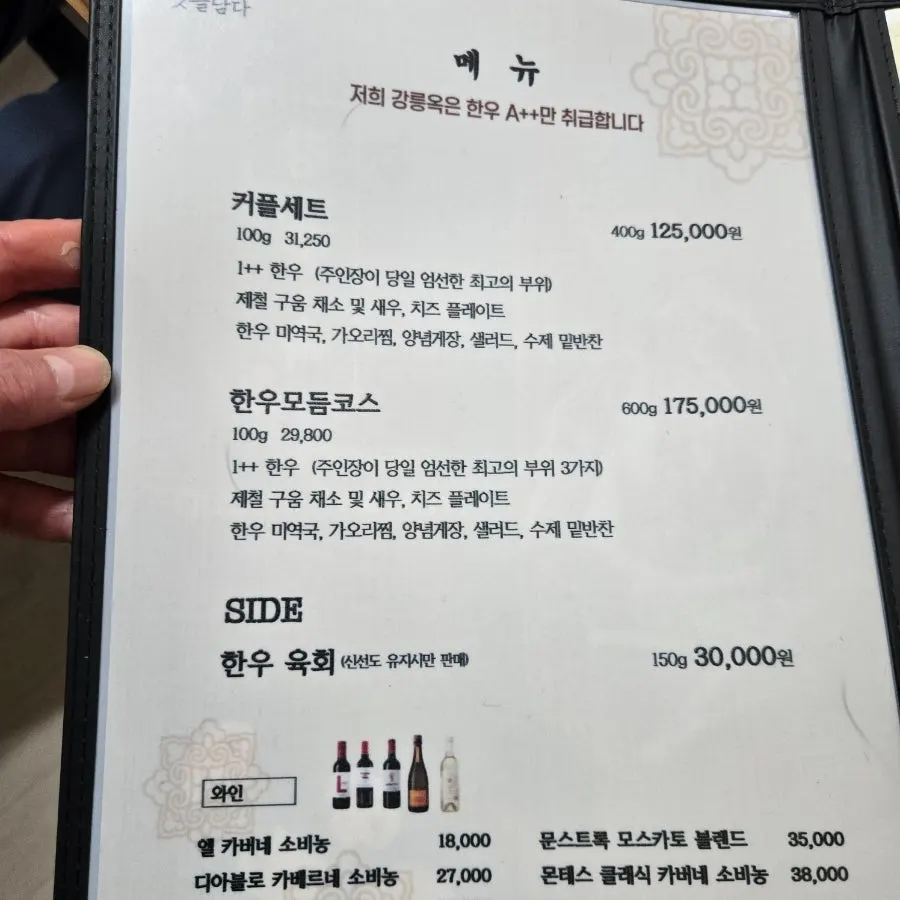 메 뉴
저희 강릉옥은 한우 A++만 취급합니다
커플세트
100g 31,250 400g 125,000원
1++ 한우 (주인장이 당일 엄선한 최고의 부위)
제철 구움 채소 및 새우, 치즈 플레이트
한우 미역국, 가오리찜, 양념게장, 샐러드, 수제 밑반찬
한우모듬코스
100g 29,800 600g 175,000원
1++ 한우 (주인장이 당일 엄선한 최고의 부위 3가지)
제철 구움 채소 및 새우, 치즈 플레이트
한우 미역국, 가오리찜, 양념게장, 샐러드, 수제 밑반찬
SIDE
한우 육회 (신선도 유지시만 판매) 150g 30,000원
와인
엘 카버네 소비뇽 18,000 문스트록 모스카토 블렌드 35,000
디아블로 카베르네 소비뇽 27,000 몬테스 클래식 카버네 소비뇽 38,000